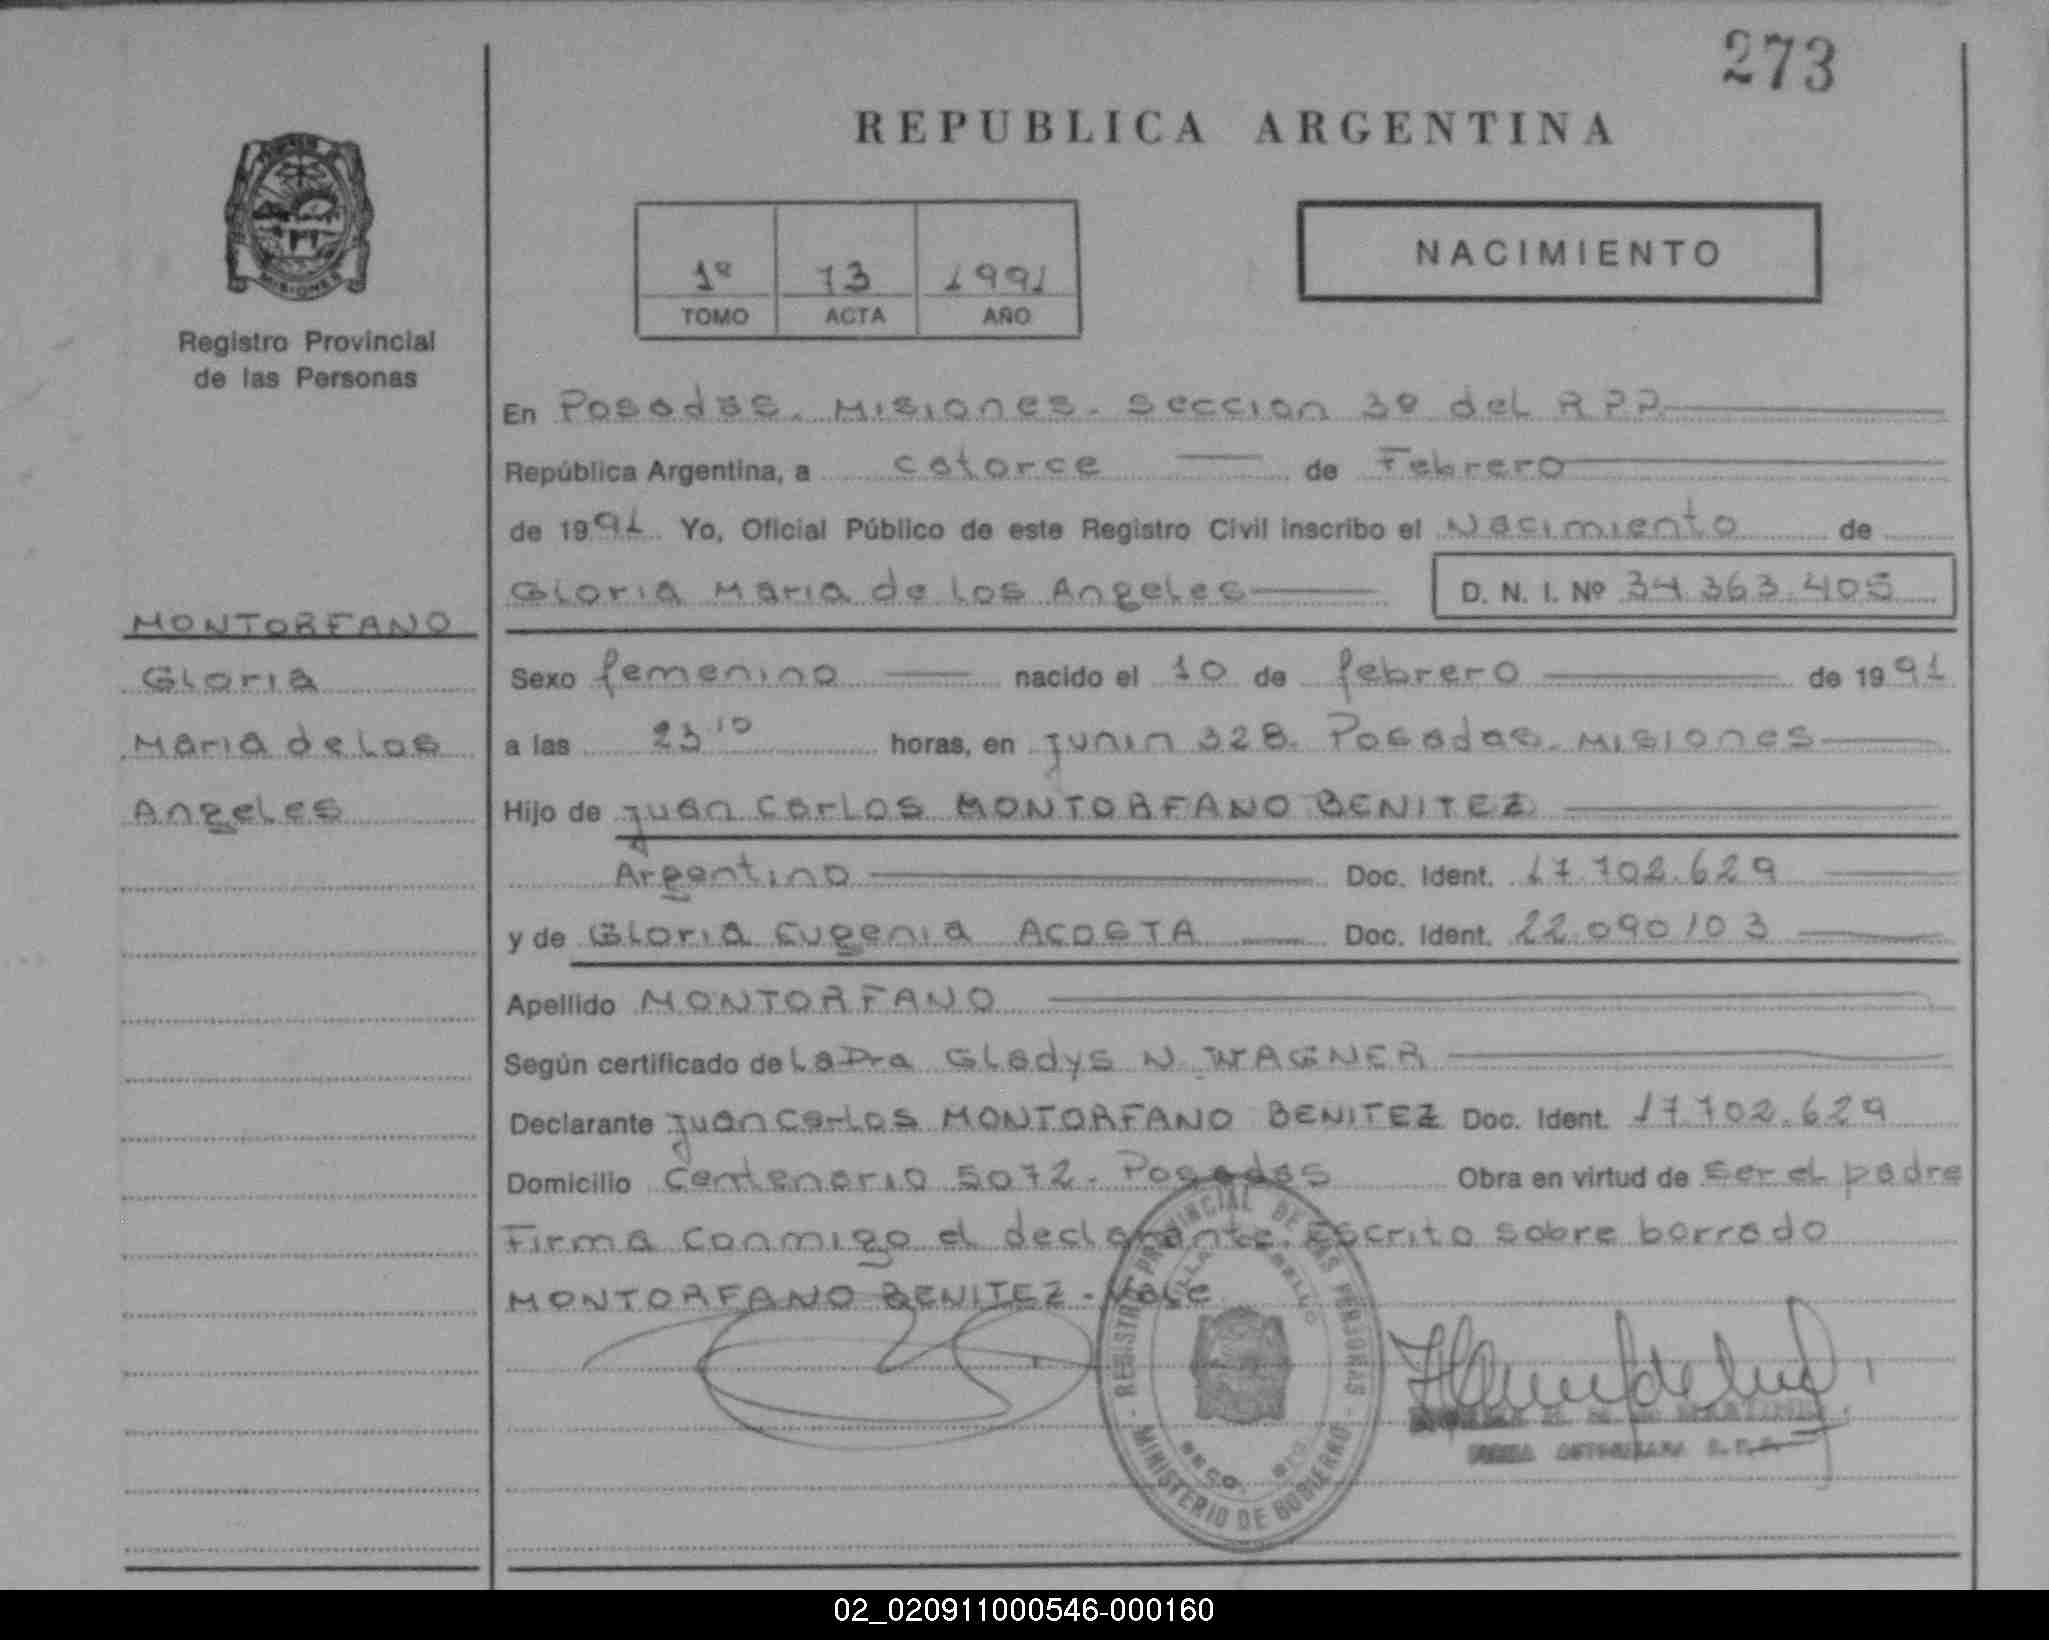 273
REPUBLICA ARGENTINA
NACIMIENTO
1º 73 1991
TOMO ACTA AÑO
MISIONES
Registro Provincial
de las Personas
En Posadas. Misiones. Seccion 3º del RPP
República Argentina, a catorce de Febrero
de 1991 Yo, Oficial Público de este Registro Civil inscribo el Nacimiento de
Gloria Maria de los Angeles D. N. I. Nº 34.363.405
MONTORFANO
Gloria
Maria de Los
Angeles
Sexo femenino nacido el 10 de febrero de 1991
a las 23 10 horas, en junin 328. Posadas. Misiones
Hijo de juan Carlos MONTORFANO BENITEZ
Argentino Doc. Ident. 17.702.629
y de Gloria Eugenia ACOSTA Doc. Ident. 22.090103
Apellido MONTORFANO
Según certificado de La Dra Gladys N. WAGNER
Declarante juan Carlos MONTORFANO BENITEZ Doc. Ident. 17.702.629
Domicilio Centenario 5072. Posadas Obra en virtud de ser el padre
Firma conmigo el declarante. Escrito sobre borrado
MONTORFANO BENITEZ - Vale
REGISTRO PROVINCIAL DE LAS PERSONAS
MINISTERIO DE GOBIERNO
02_020911000546-000160